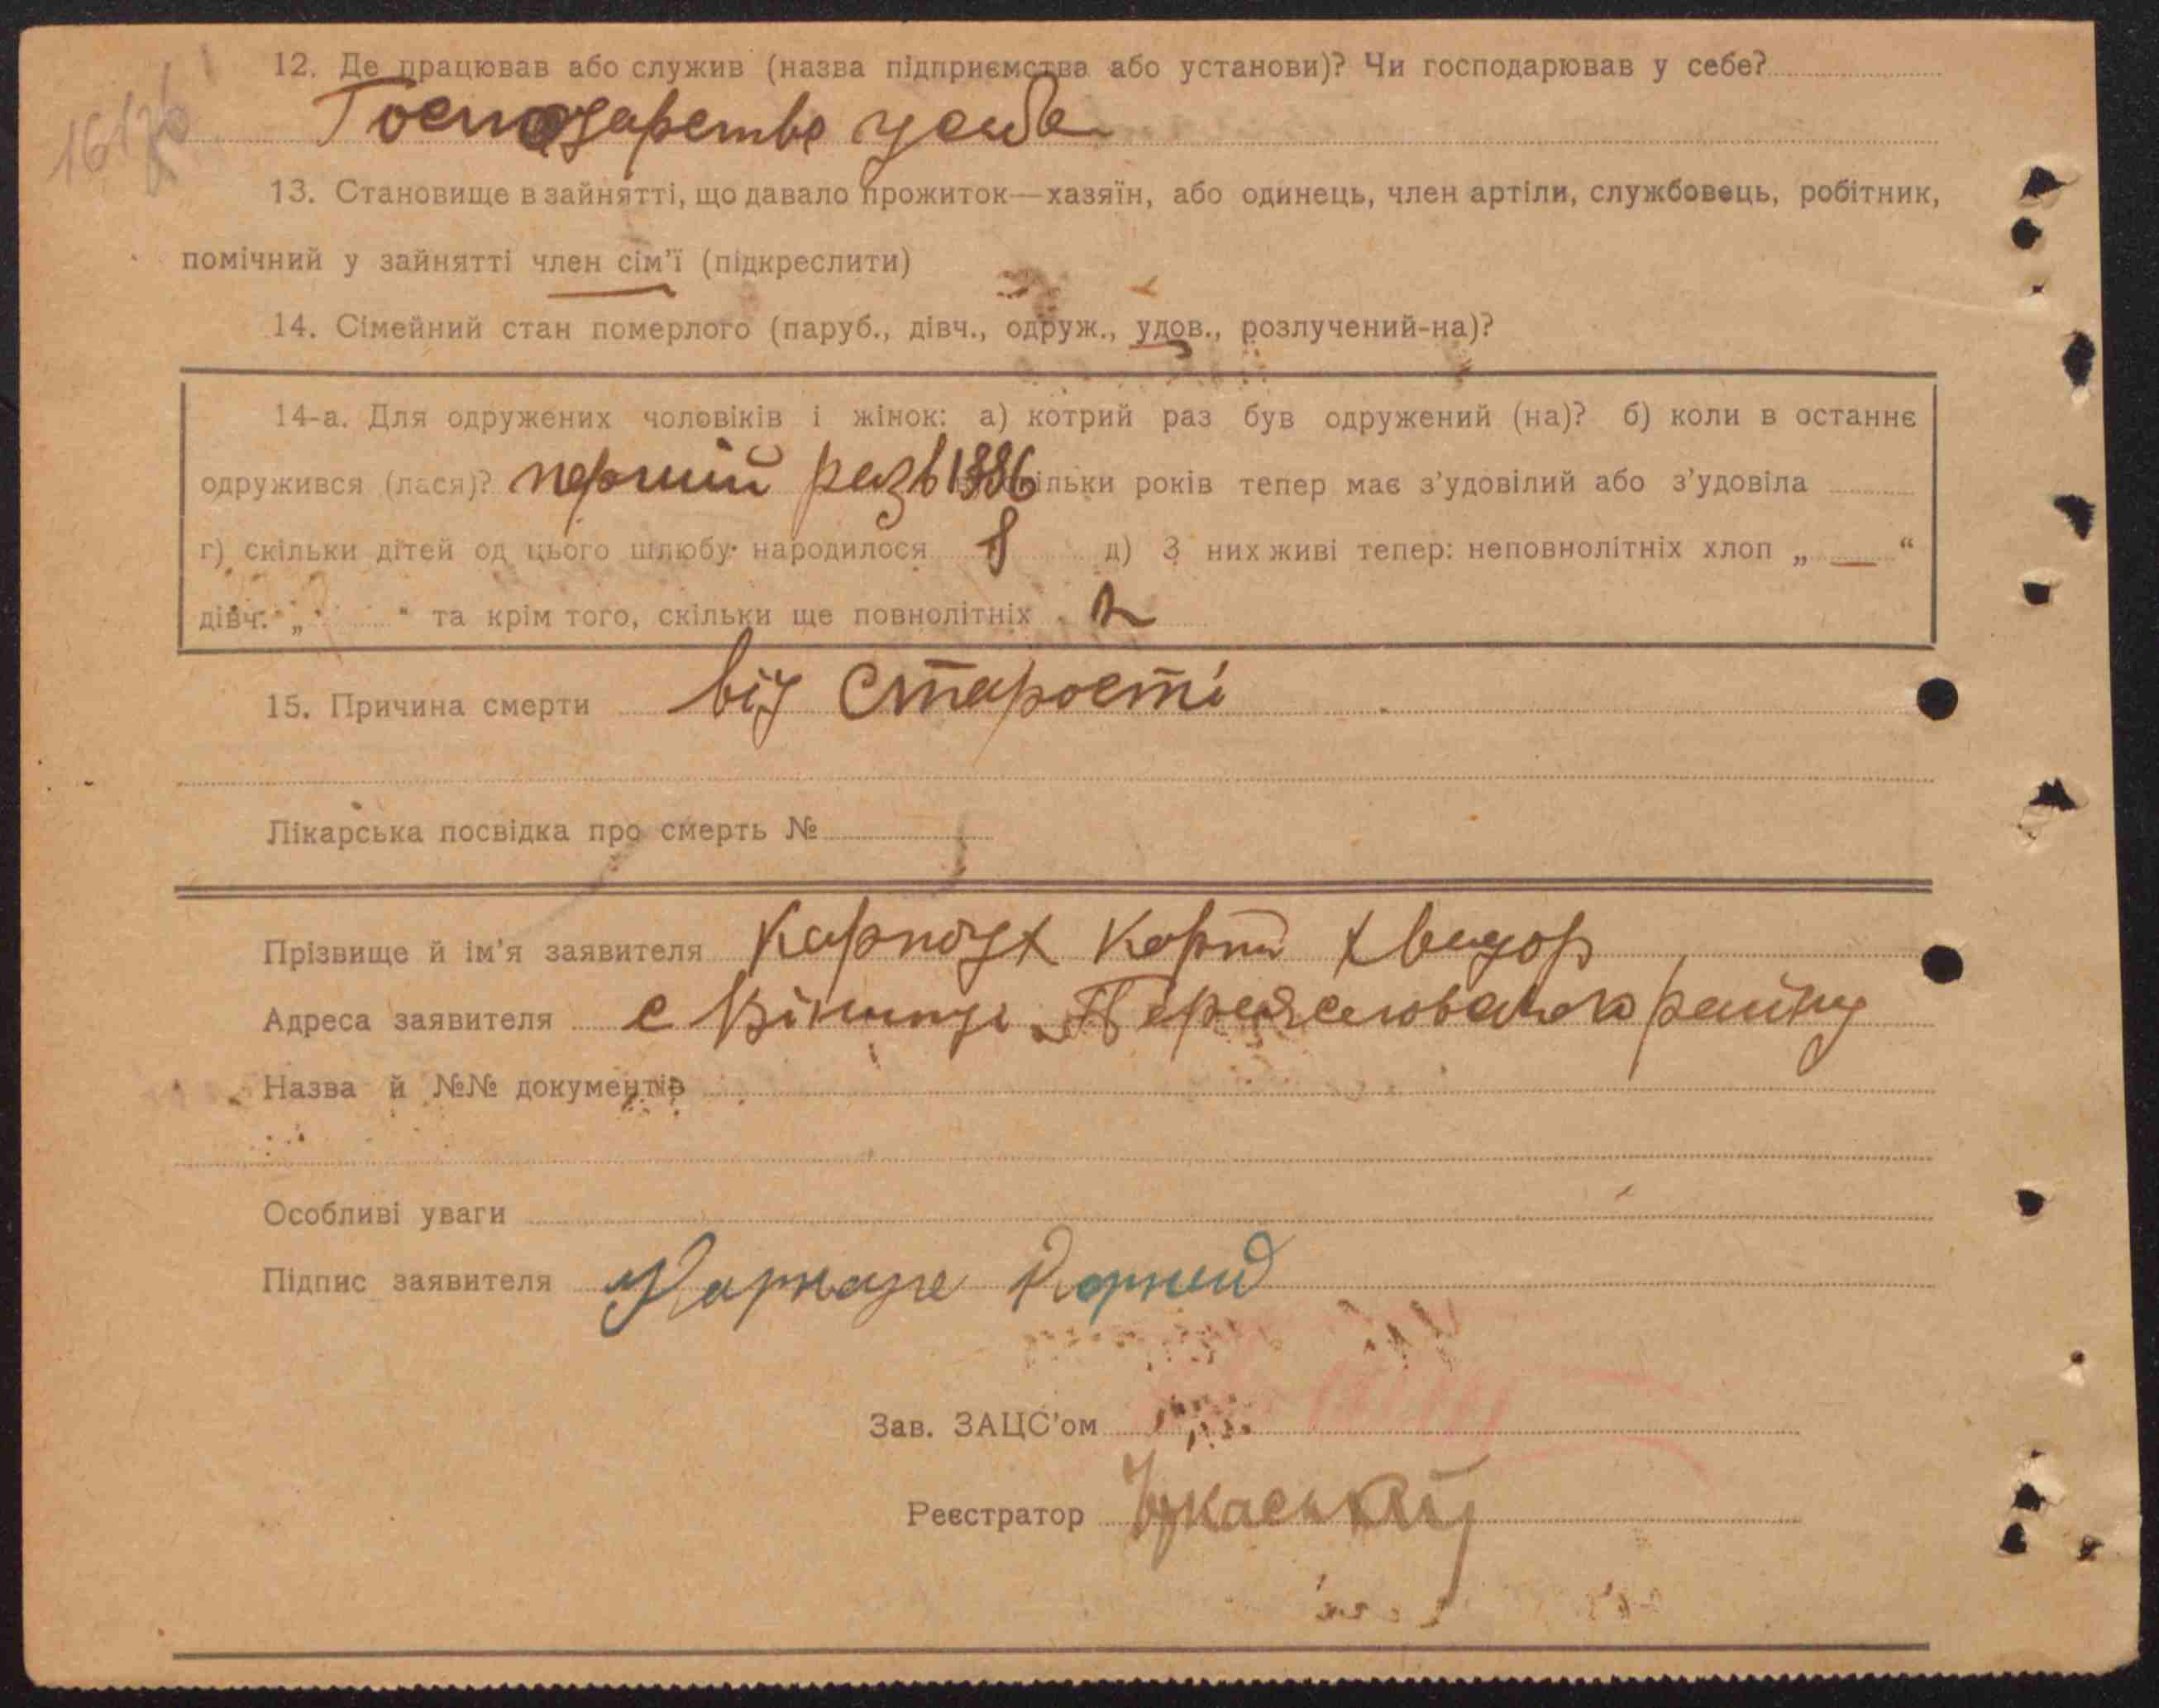 12. Де працював або служив (назва підприємства або установи)? Чи господарював у себе?
Господарство усебе
13. Становище в зайнятті, що давало прожиток—хазяїн, або одинець, член артіли, службовець, робітник,
помічний у зайнятті член сім'ї (підкреслити)
14. Сімейний стан померлого (паруб., дівч., одруж., удов., розлучений-на)?
14-а. Для одружених чоловіків і жінок: а) котрий раз був одружений (на)? б) коли в останнє
одружився (лася)? перший раз в 1886 скільки років тепер має з'удовілий або з'удовіла
г) скільки дітей од цього шлюбу народилося 8 д) З них живі тепер: неповнолітніх хлоп „ — “
дівч. „ “ та крім того, скільки ще повнолітніх 2
15. Причина смерти від старости
Лікарська посвідка про смерть №
Прізвище й ім'я заявителя Хведор
Адреса заявителя с району
Назва й №№ документів
Особливі уваги
Підпис заявителя
Зав. ЗАЦС'ом
Реєстратор